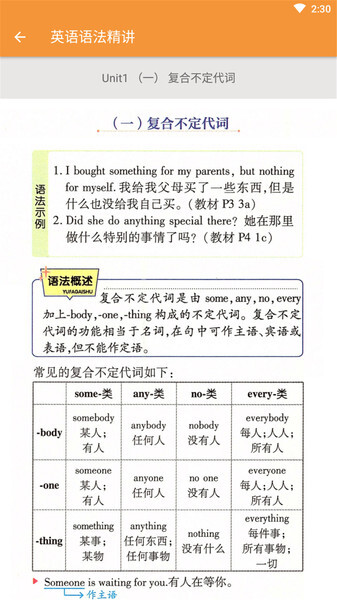 2:30
英语语法精讲
Unit1 （一） 复合不定代词
（一）复合不定代词
语法示例
1. I bought something for my parents, but nothing
for myself. 我给我父母买了一些东西,但是
什么也没给我自己买。（教材 P3 3a）
2. Did she do anything special there? 她在那里
做什么特别的事情了吗?（教材 P4 1c）
语法概述
YUFAGAISHU
复合不定代词是由 some, any, no, every
加上-body, -one, -thing 构成的不定代词。复合不定
代词的功能相当于名词,在句中可作主语、宾语或
表语,但不能作定语。
常见的复合不定代词如下:
some-类 any-类 no-类 every-类
-body
somebody
某人;
有人
anybody
任何人
nobody
没有人
everybody
每人;人人;
所有人
-one
someone
某人;
有人
anyone
任何人
no one
没有人
everyone
每人;人人;
所有人
-thing
something
某事;
某物
anything
任何东西;
任何事物
nothing
没有什么
everything
每件事;
所有事物;
一切
Someone is waiting for you. 有人在等你。
作主语